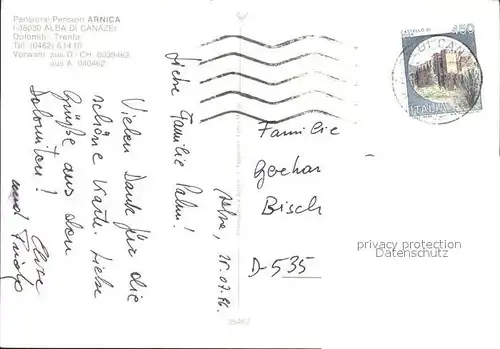 Pensione-Pension ARNICA
I-38030 ALBA DI CANAZEI
Dolomiti - Trento
Tel. (0462) 61410
Vorwahl aus D - CH 0039462
aus A 040462
Alba, 25.07.86
Liebe Familie Palm!
Vielen Dank für die
schöne Karte. Liebe
Grüße aus den
Dolomiten!
und
Familie
Bisch
D-535
CASTELLO DI
450
ITALIA
35462
privacy protection
Datenschutz